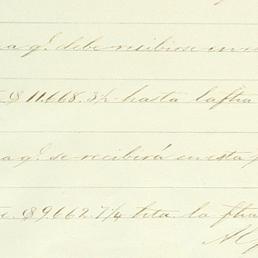 a qᵉ. debe recibirse en es
$ 11.668.3½ hasta la fha
a qᵉ. se recibirá en esta
$ 9662.7¼ hta. la fha